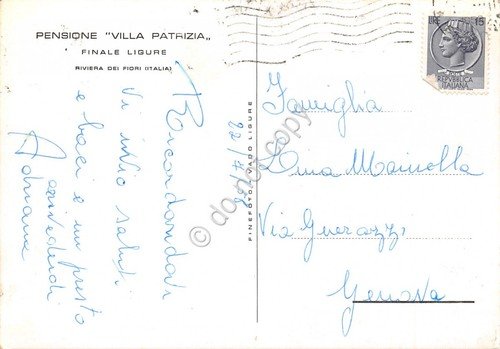 PENSIONE "VILLA PATRIZIA"
FINALE LIGURE
RIVIERA DEI FIORI (ITALIA)
Ricordandovi
Vi invio saluti
e baci e un presto
arrivederci
Adriana
22/7/
FINEFOTO VADO LIGURE
LIRE 15
REPUBBLICA
ITALIANA
Famiglia
Lina Mainolla
Via Guerazzi
Genova